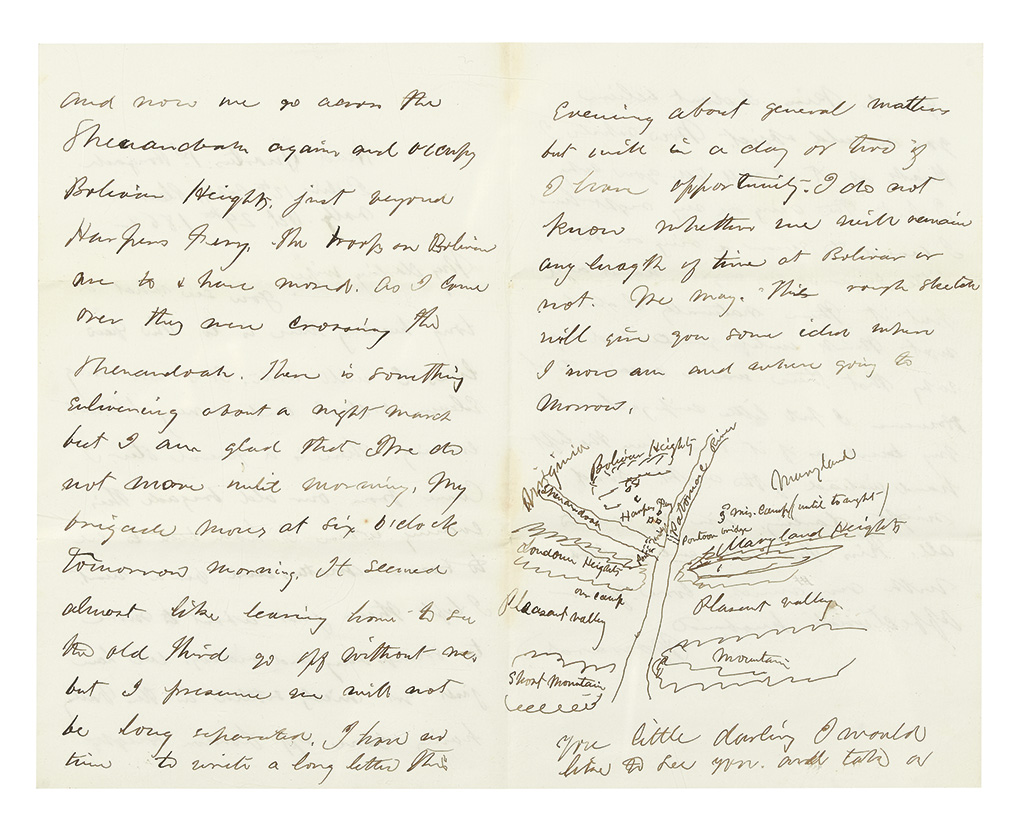 and now we go across the
Shenandoah again and occupy
Bolivar Heights, just beyond
Harpers Ferry. The troops on Bolivar
are to & have moved. As I came
over they were crossing the
Shenandoah. There is something
enlivening about a night march
but I am glad that I do
not move until morning. My
brigade moves at six o'clock
tomorrow morning. It seemed
almost like leaving home to see
the old third go off without me.
but I presume we will not
be long separated. I have no
time to write a long letter this
Evening about general matters
but will in a day or two if
I have opportunity. I do not
know whether we will remain
any length of time at Bolivar or
not. We may. This rough sketch
will give you some idea where
I now am and where going to
morrow.
Virginia
Bolivar Heights
Potomac River
Maryland
Shenandoah
Harpers Fery
3 mis. camp (until to night)
Pontoon bridge
Maryland Heights
Loudoun Heights
our camp
Pleasant valley
Pleasant valley
Mountain
Short Mountain
You little darling I would
like to see you. and take a